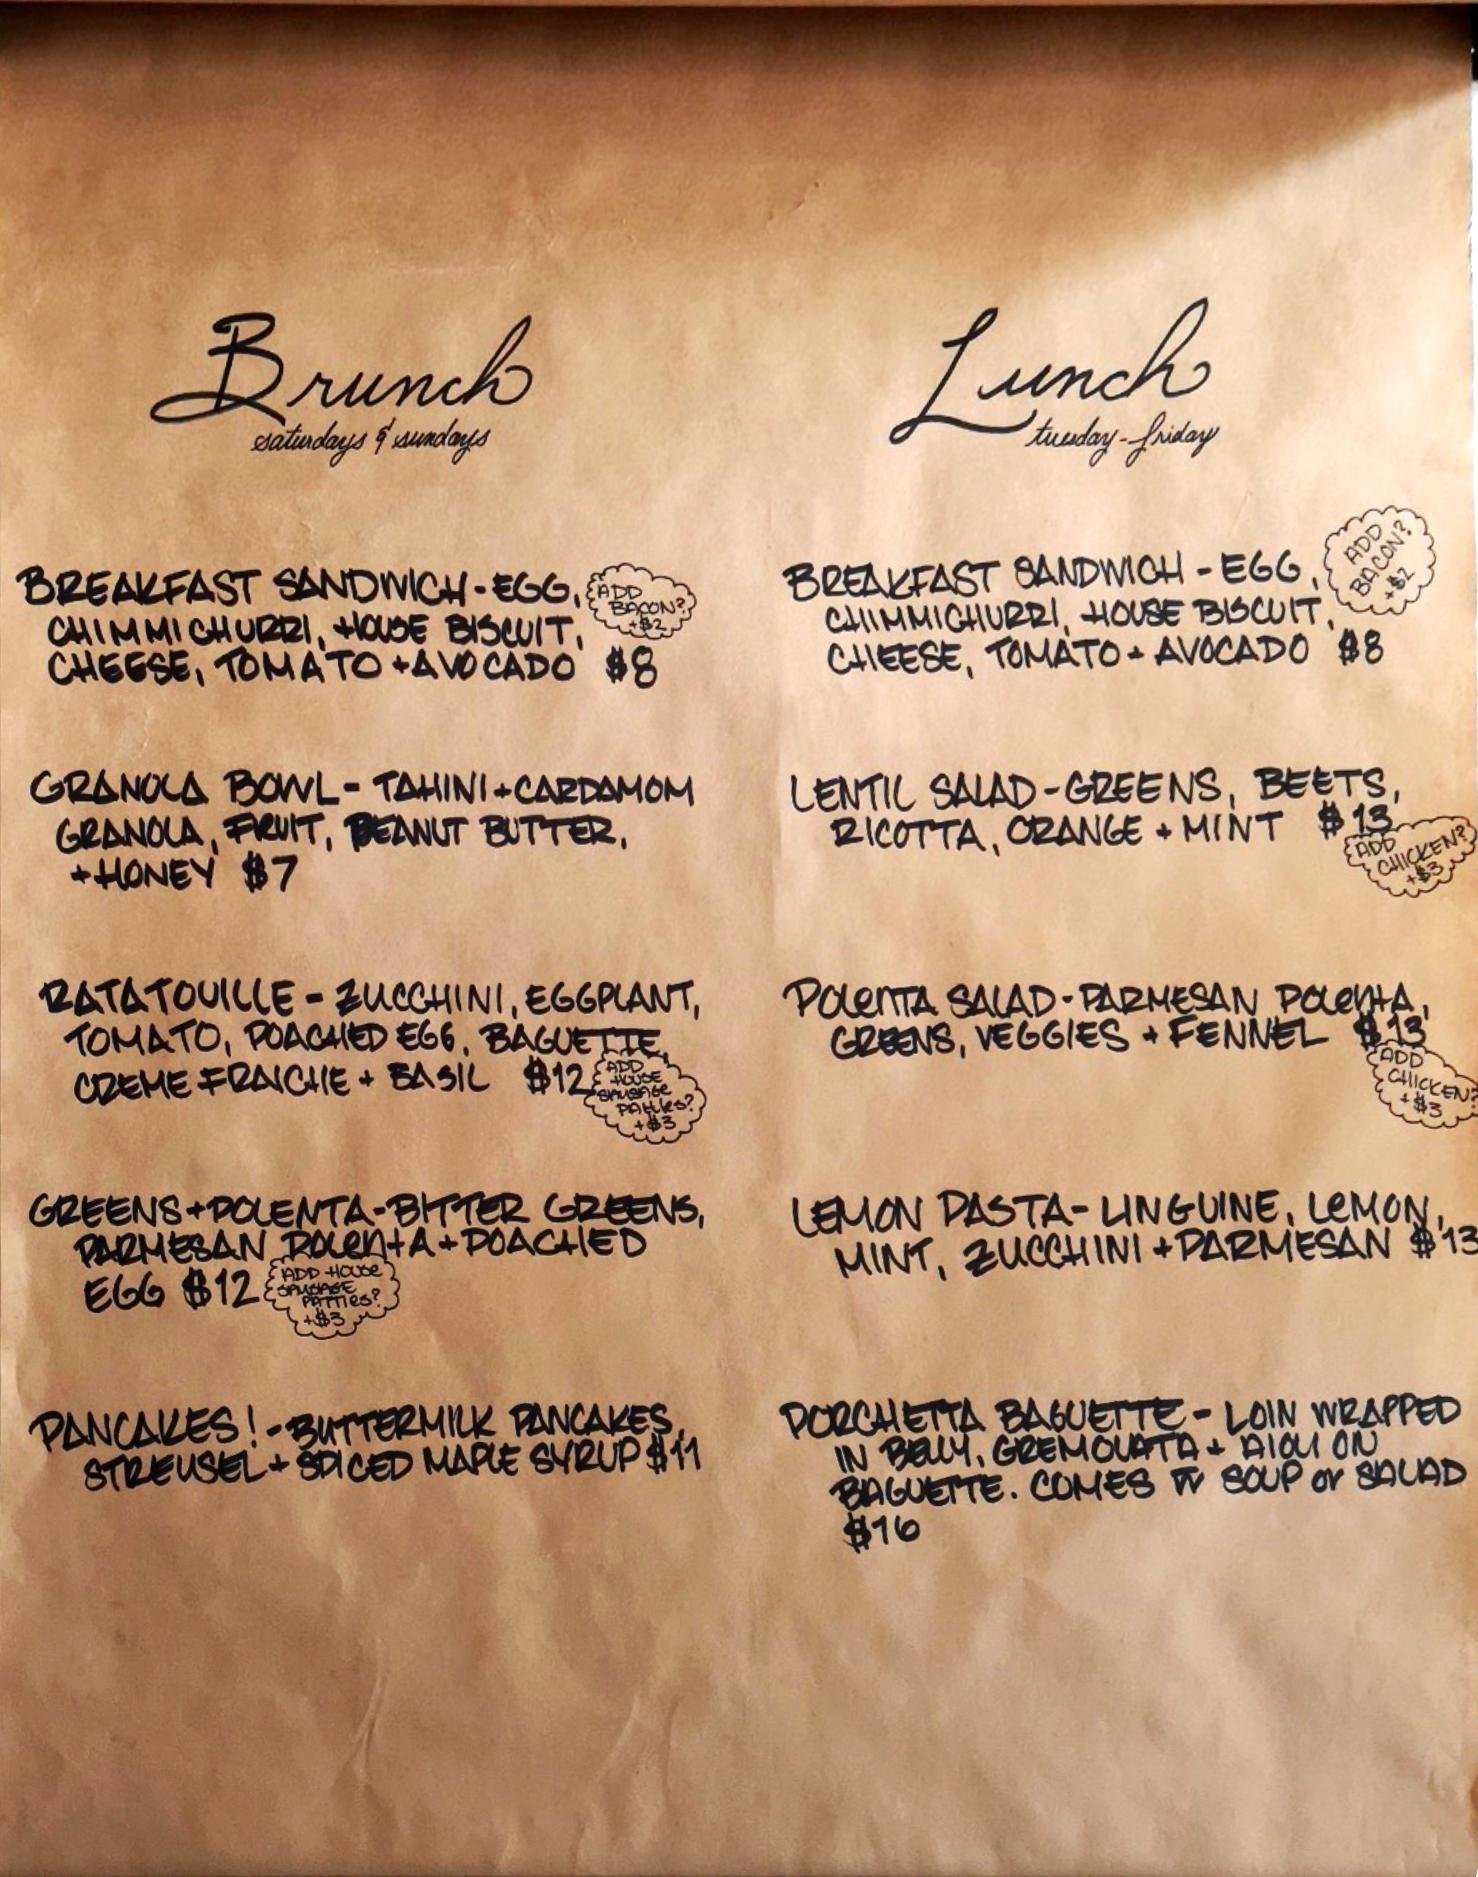 Brunch
saturdays & sundays
BREAKFAST SANDWICH - EGG,
CHIMMICHURRI, HOUSE BISCUIT,
CHEESE, TOMATO + AVOCADO $8
ADD
BACON?
+$2
GRANOLA BOWL - TAHINI + CARDAMOM
GRANOLA, FRUIT, PEANUT BUTTER,
+ HONEY $7
RATATOUILLE - ZUCCHINI, EGGPLANT,
TOMATO, POACHED EGG, BAGUETTE,
CREME FRAICHE + BASIL $12
ADD
HOUSE
SAUSAGE
PATTIES?
+$3
GREENS + POLENTA - BITTER GREENS,
PARMESAN POLENTA + POACHED
EGG $12
ADD HOUSE
SAUSAGE
PATTIES?
+$3
PANCAKES! - BUTTERMILK PANCAKES,
STREUSEL + SPICED MAPLE SYRUP $11
Lunch
tuesday - friday
BREAKFAST SANDWICH - EGG,
CHIMMICHURRI, HOUSE BISCUIT,
CHEESE, TOMATO + AVOCADO $8
ADD
BACON?
+$2
LENTIL SALAD - GREENS, BEETS,
RICOTTA, ORANGE + MINT $13
ADD
CHICKEN?
+$3
POLENTA SALAD - PARMESAN POLENTA,
GREENS, VEGGIES + FENNEL $13
ADD
CHICKEN?
+$3
LEMON PASTA - LINGUINE, LEMON,
MINT, ZUCCHINI + PARMESAN $13
PORCHETTA BAGUETTE - LOIN WRAPPED
IN BELLY, GREMOLATA + AIOLI ON
BAGUETTE. COMES W SOUP or SALAD
$16